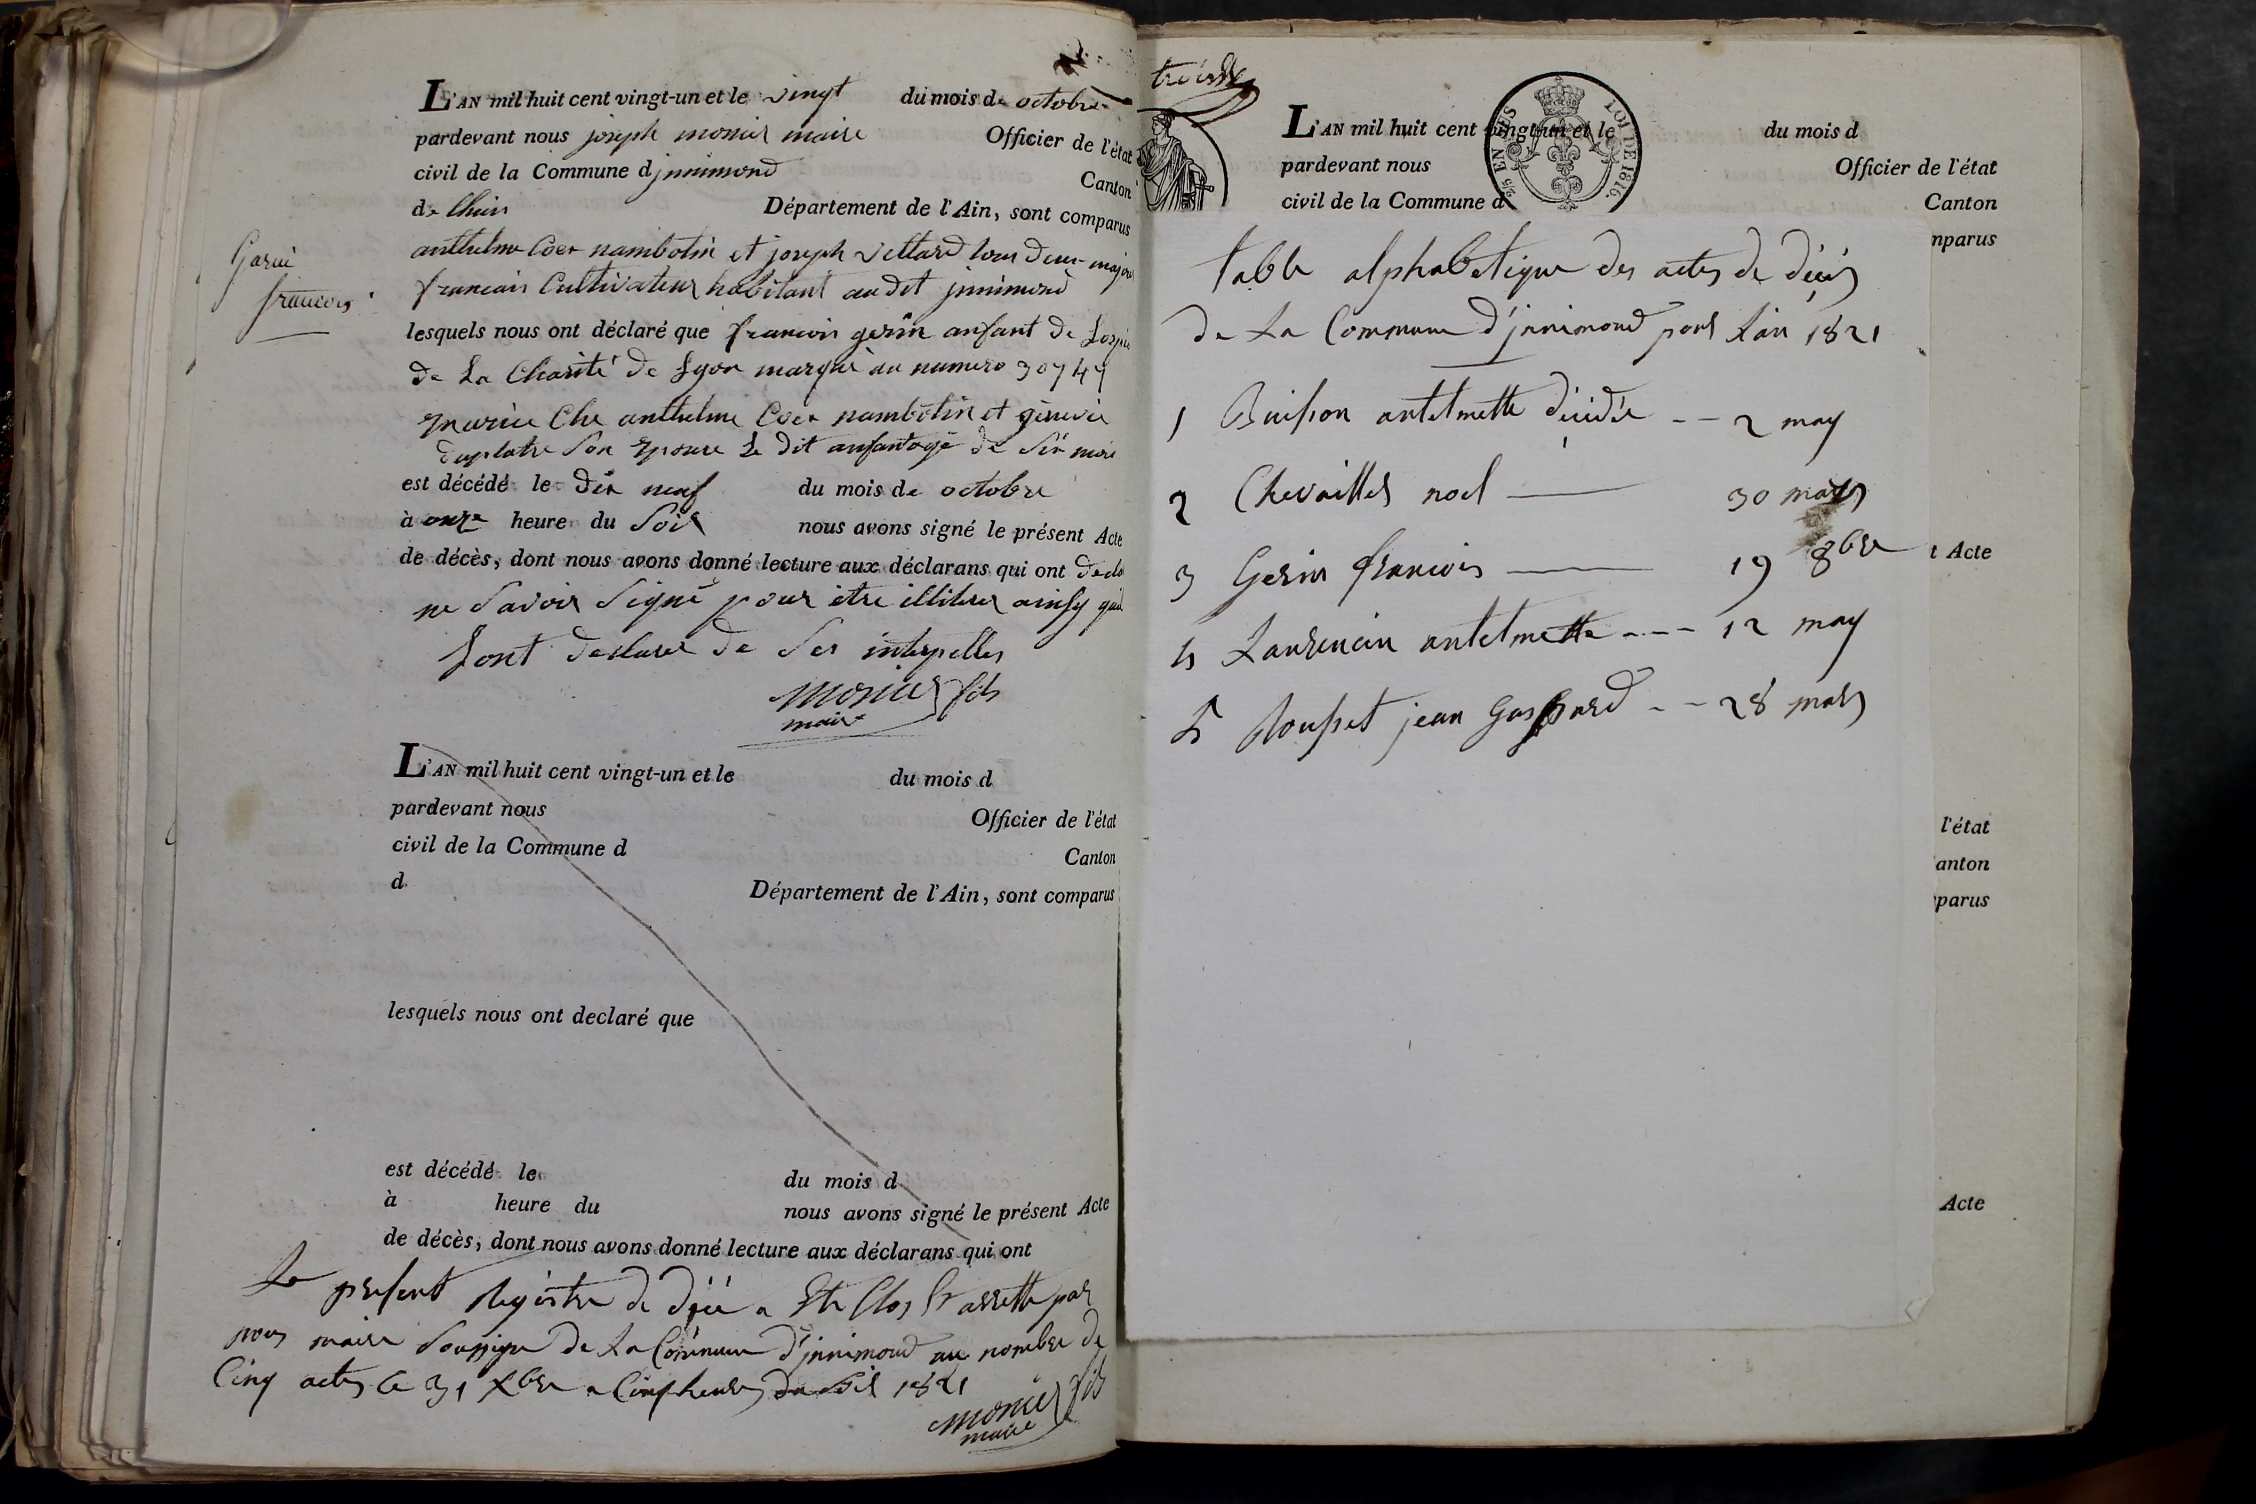 L'AN mil huit cent vingt-un et le vingt du mois de octobre
pardevant nous joseph monier maire Officier de l'état
civil de la Commune d jnnimond Canton
de lhuis Département de l'Ain, sont comparus
anthelme Coer nambotin et joseph vettard tous deux majeur
francais Cultivateur habitant audit jnnimond
Gerin
francois
lesquels nous ont déclaré que francois gerin anfant de Lospice
de La Charité de Lyon marqué au numero 30747
Nourice Che anthelme Coer nambotin et genevie
duplatre Son Epouse Le dit anfant agé de Six mois
est décédé le dix neuf du mois de octobre
à onze heure du Soir nous avons signé le présent Acte
de décès, dont nous avons donné lecture aux déclarans qui ont declaré
ne Savoir Signé pour être illitere ainsy quil
Lont declaré de Ses interpelles
monier fils
maire
L'AN mil huit cent vingt-un et le du mois d
pardevant nous Officier de l'état
civil de la Commune d Canton
d Département de l'Ain, sont comparus
lesquels nous ont declaré que
est décédé le du mois d
à heure du nous avons signé le présent Acte
de décès, dont nous avons donné lecture aux déclarans qui ont
Le present Registre de décé a Ete Clos Et arretté par
nous maire Soussigne de La Commune d'jnnimond au nombre de
Cinq actes ce 31 Xbre a Cinq heures du Soir 1821
monier fils
maire
troisie
L'AN mil huit cent vingt-un et le du mois d
pardevant nous Officier de l'état
civil de la Commune d Canton
25 EN SUS
LOI DE 1816.
mparus
table alphabetique des actes de décés
de La Commune d'jnnimond pour Lan 1821
1 Buisson antelmette décédée -- 2 may
2 Chevailler noel — 30 mars
3 Gerin francois — 19 8bre
t Acte
4 Laurencin antelmette --- 12 may
5 Rousset jean Gaspard -- 28 mars
l'état
anton
parus
Acte